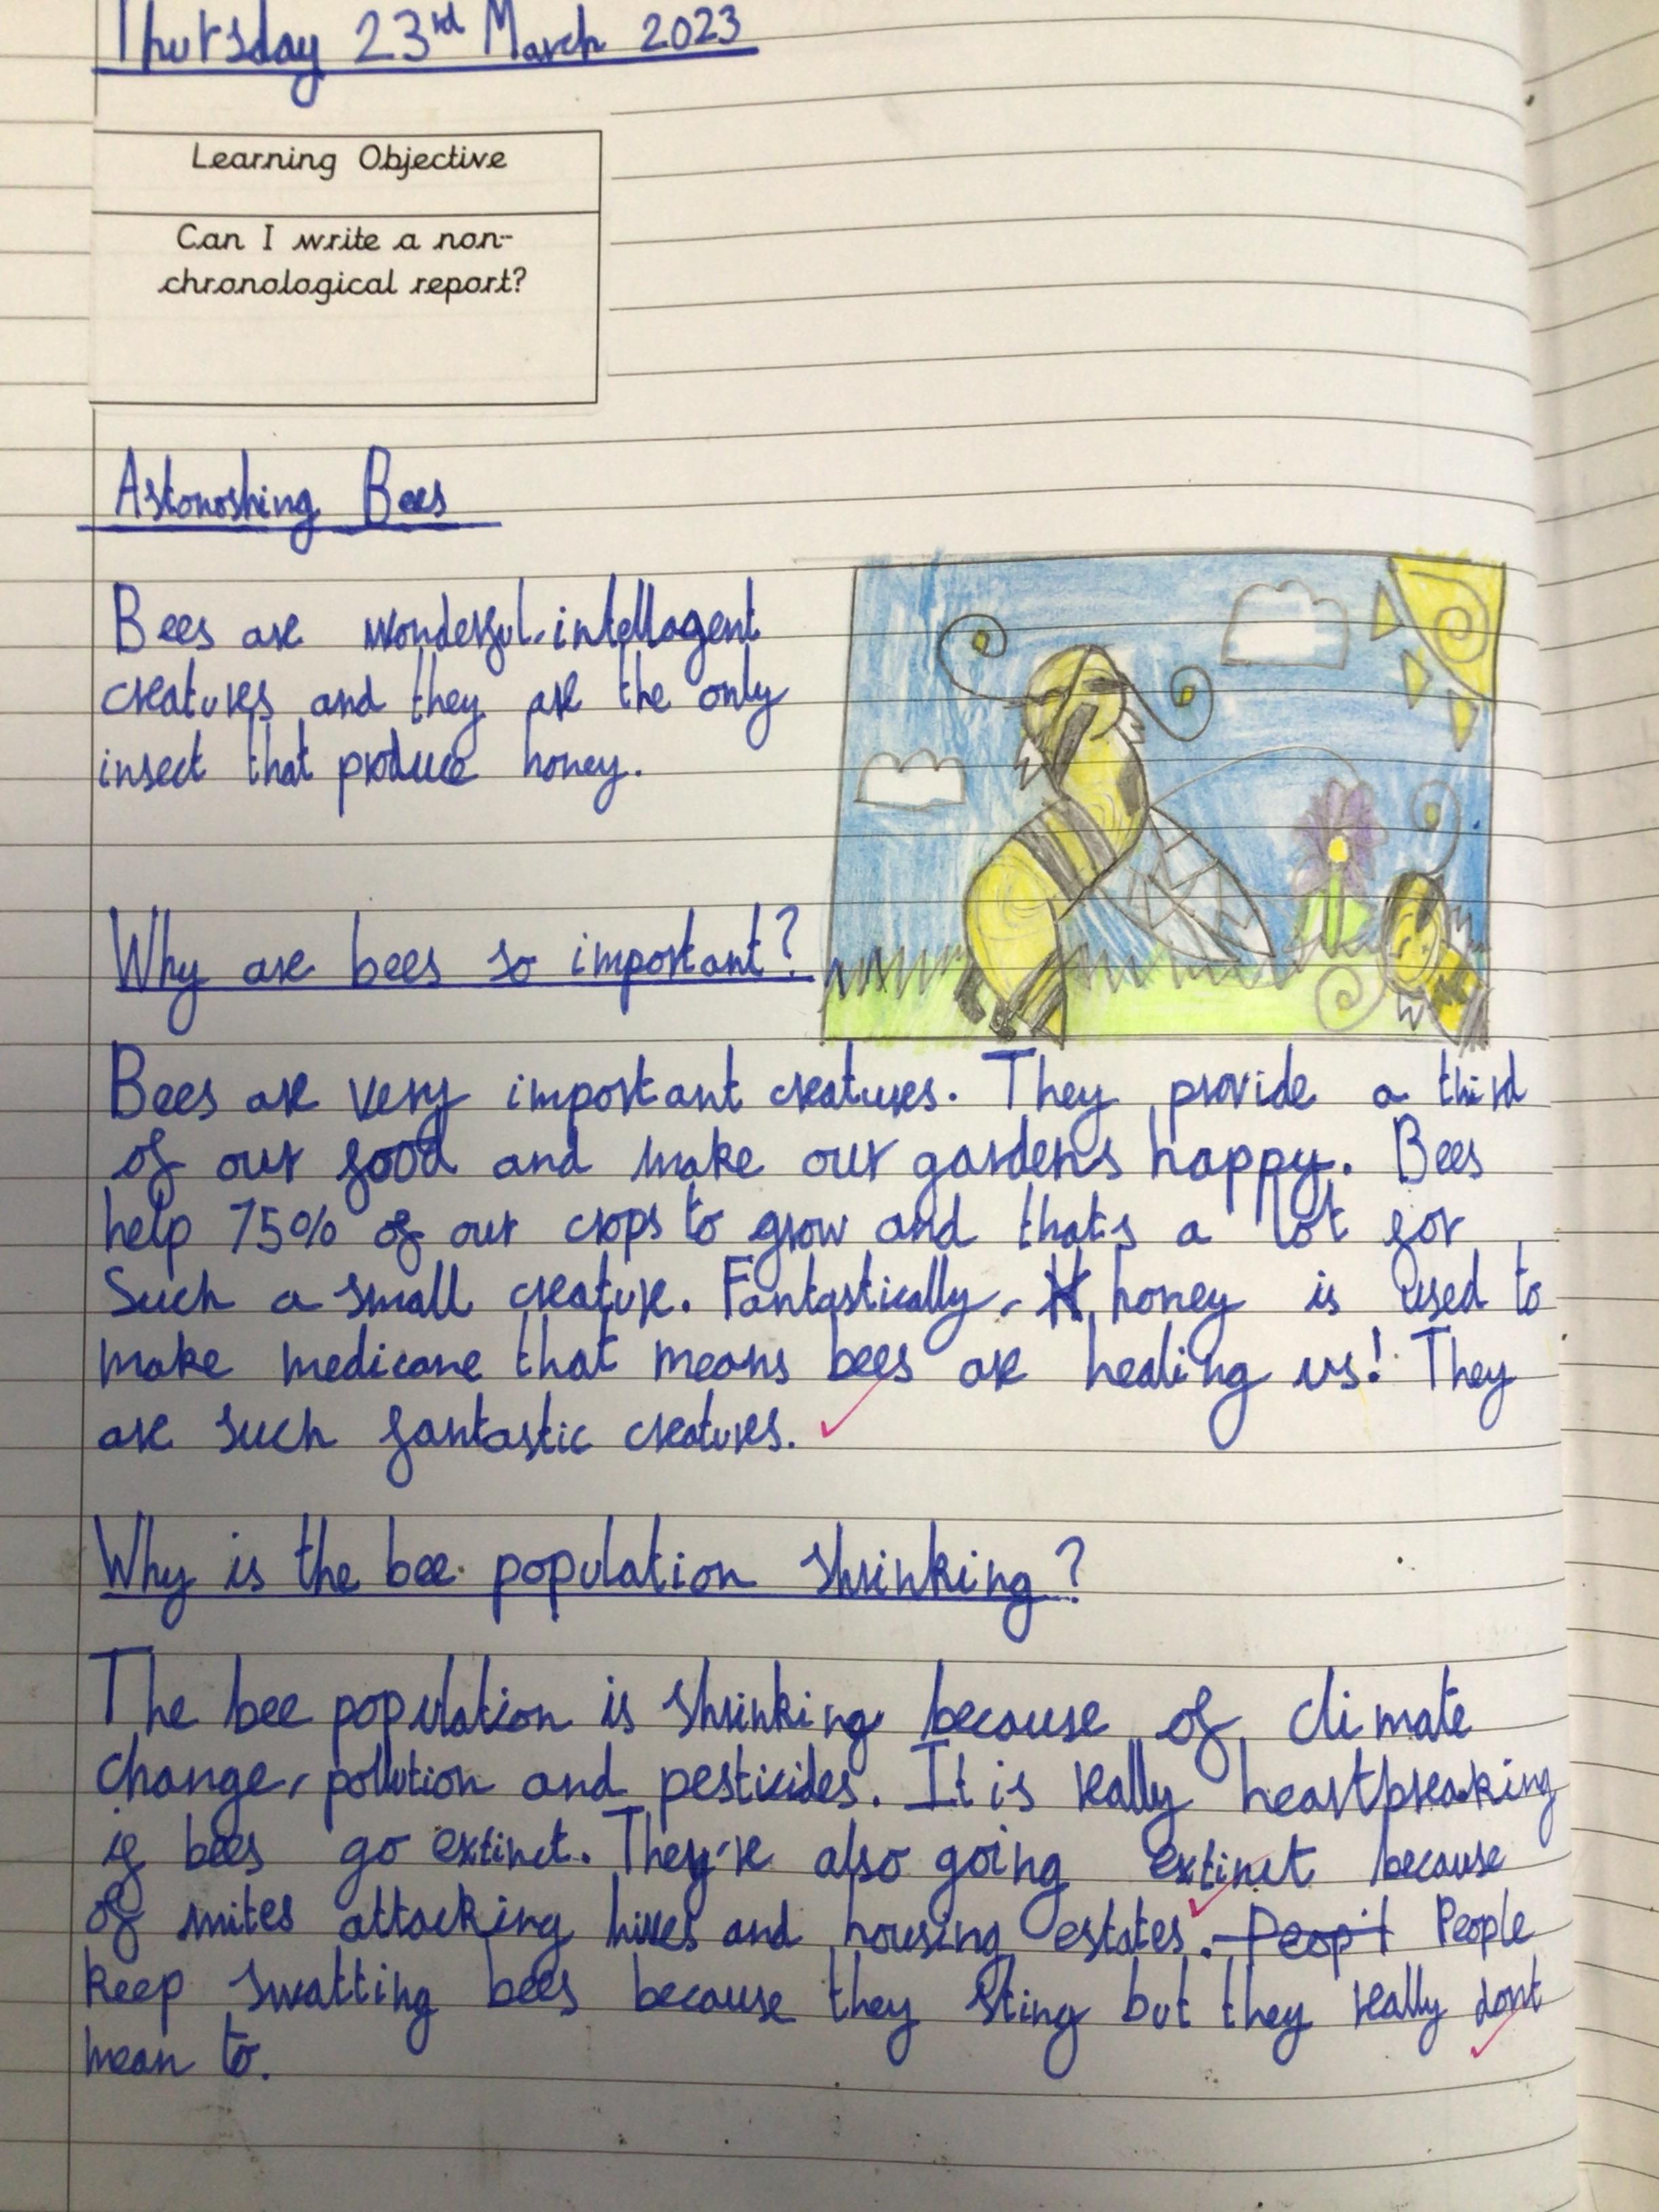 Thursday 23rd March 2023
Learning Objective
Can I write a non-
chronological report?
Astonoshing Bees
Bees are wonderful, intellagent
creatures and they are the only
insect that produce honey.
Why are bees so important?
Bees are very important creatures. They provide a third
of our food and make our gardens happy. Bees
help 75% of our crops to grow and thats a lot for
Such a small creature. Fantastically, H honey is used to
make medicane that means bees are healing us! They
are such fantastic creatures.
Why is the bee population shrinking?
The bee population is shrinking because of climate
change, pollution and pesticides. It is really heartbreaking
if bees go extinct. They're also going extinct because
of mites attacking hives and housing estates. Peop't People
keep swatting bees because they sting but they really dont
mean to.